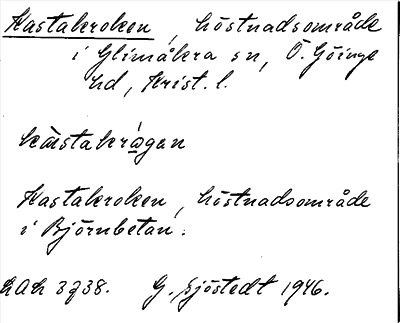 Kastakroken, höstnadsområde
i Glimåkra sn, Ö. Göinge
hd, Krist. l.
kàstakrågan
Kastakroken, höstnadsområde
i Björnbetan.
LAL 3738. G. Sjöstedt 1946.